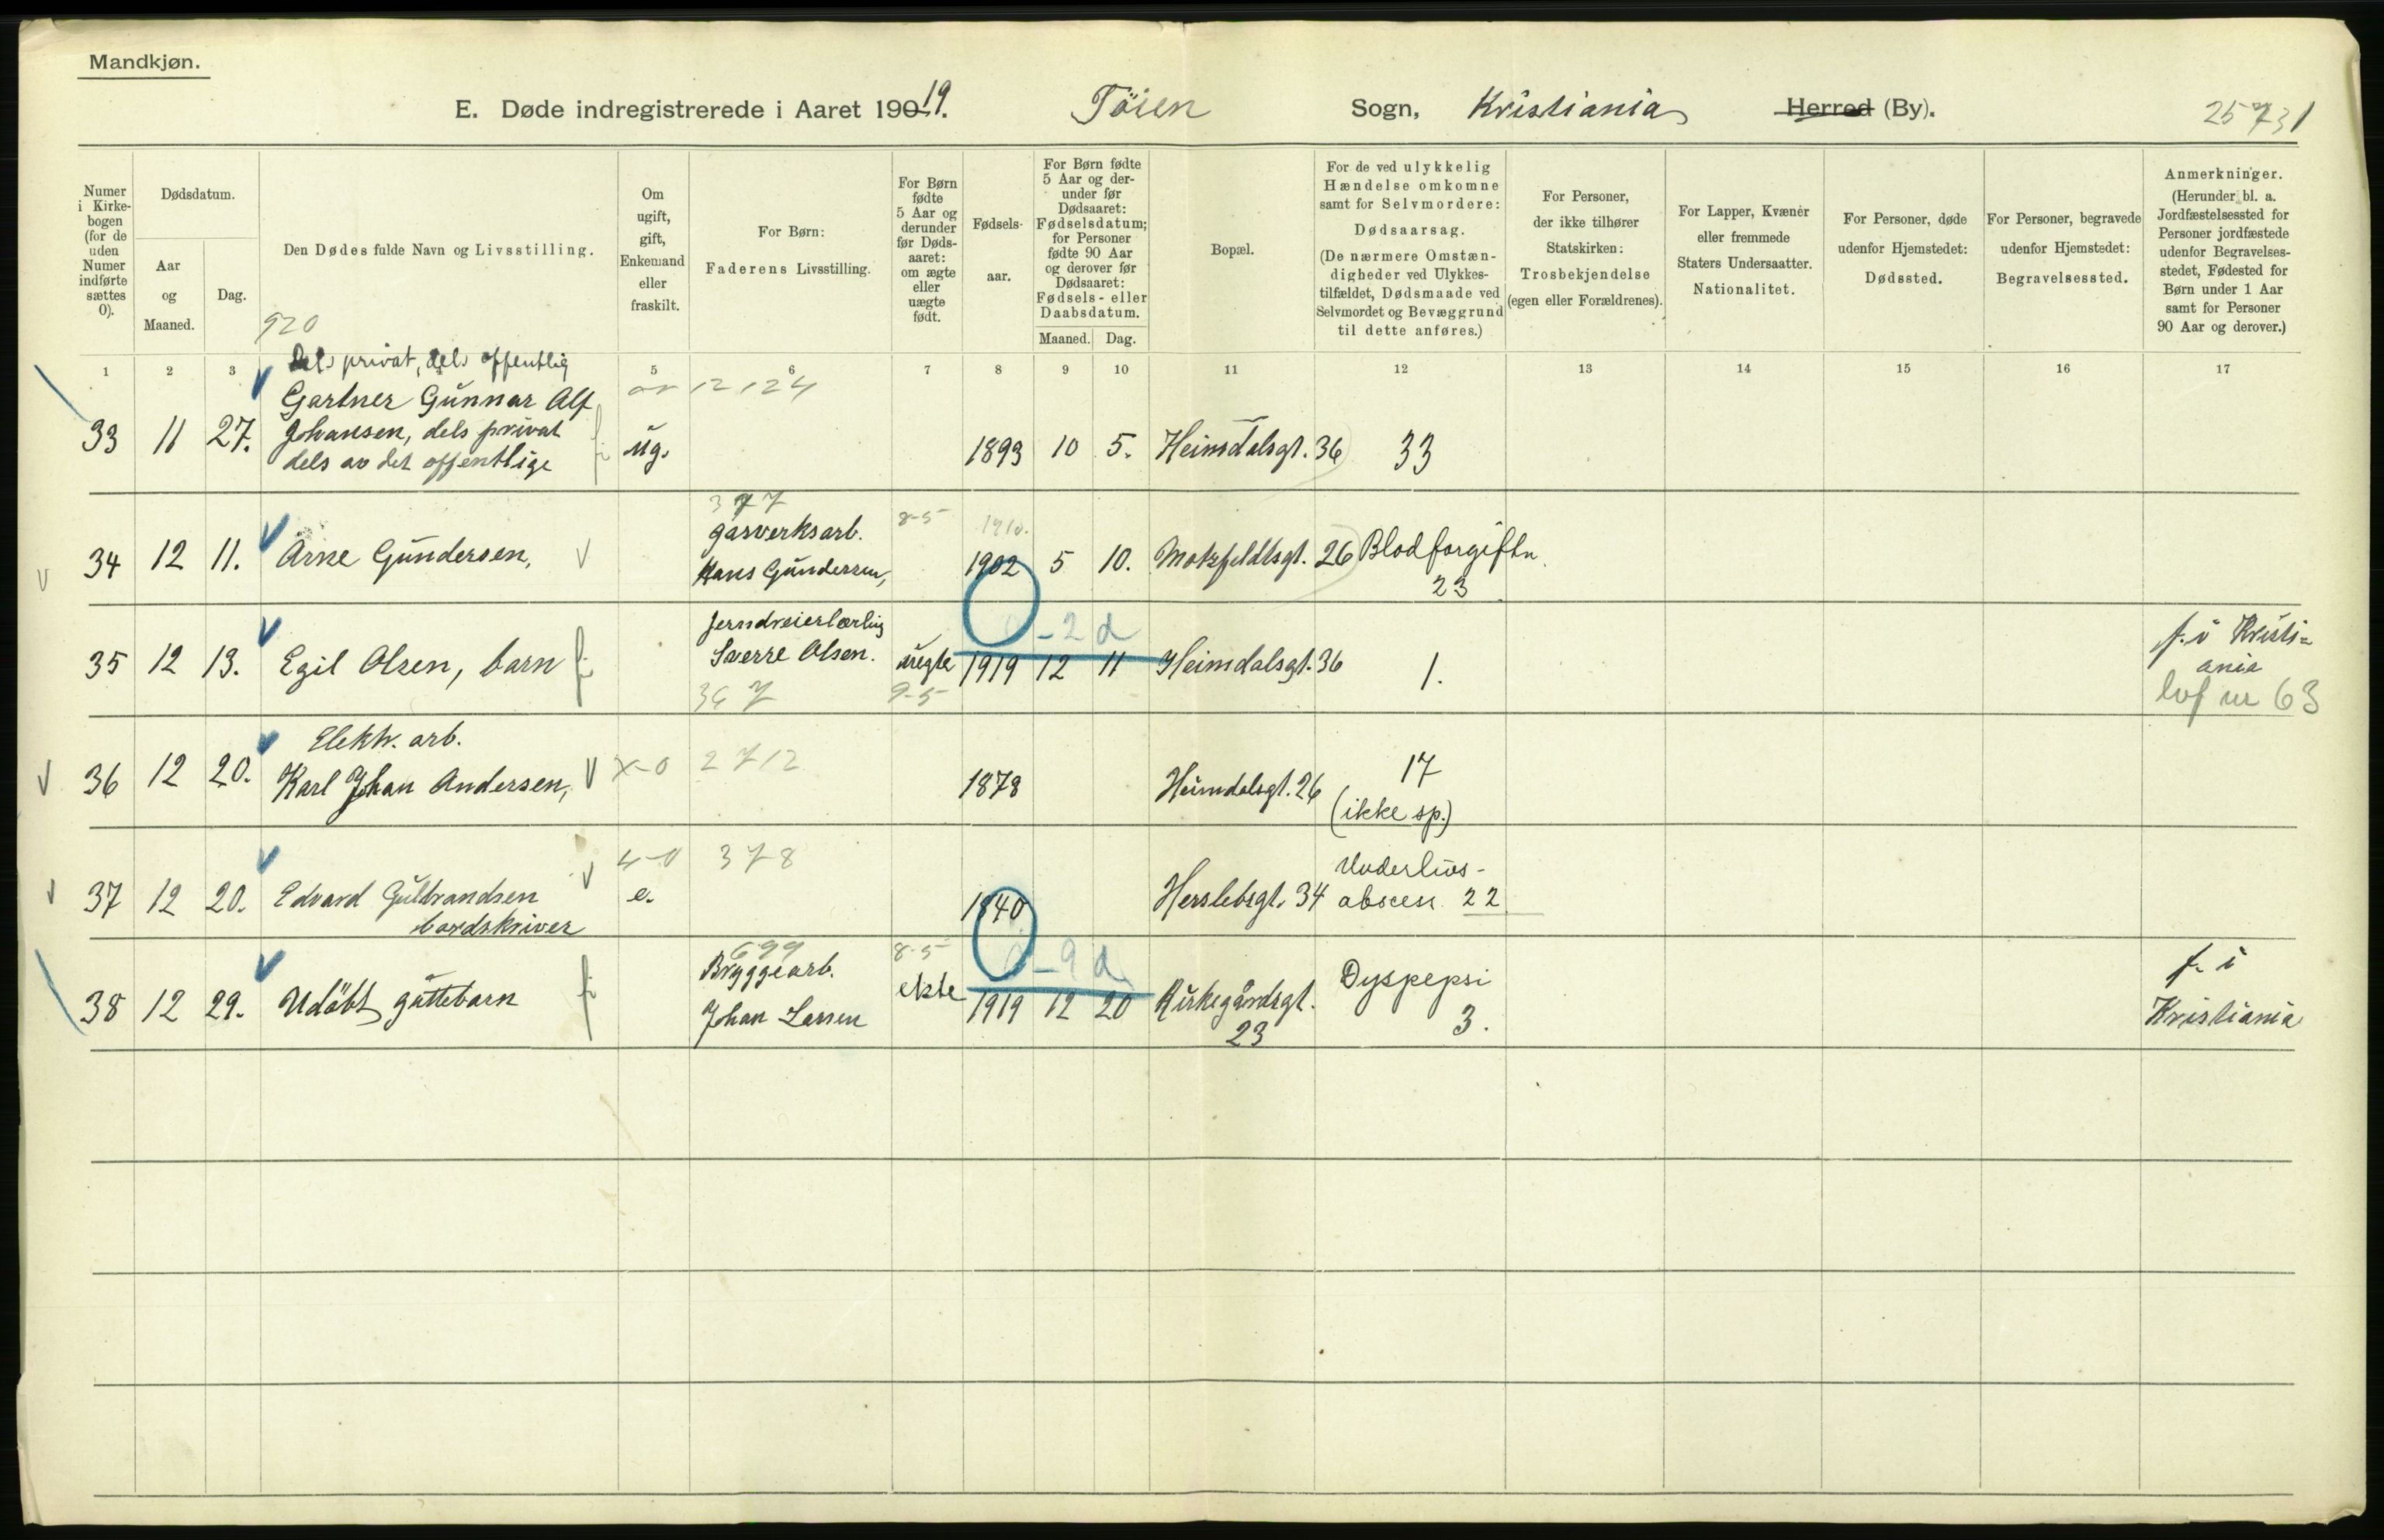 Mandkjøn.
E. Døde indregistrerede i Aaret 1919. Töien Sogn, Kristiania Herred (By).
25 731
Numer i Kirkebogen (for de uden Numer indførte sættes 0).
Dødsdatum.
Aar og Maaned.
Dag.
Den Dødes fulde Navn og Livsstilling.
Om ugift, gift, Enkemand eller fraskilt.
For Børn: Faderens Livsstilling.
For Børn fødte 5 Aar og derunder før Dødsaaret: om ægte eller uægte født.
Fødselsaar.
For Børn fødte 5 Aar og derunder før Dødsaaret: Fødselsdatum; for Personer fødte 90 Aar og derover før Dødsaaret: Fødsels- eller Daabsdatum.
Maaned. Dag.
Bopæl.
For de ved ulykkelig Hændelse omkomne samt for Selvmordere: Dødsaarsag. (De nærmere Omstændigheder ved Ulykkestilfældet, Dødsmaade ved Selvmordet og Bevæggrund til dette anføres.)
For Personer, der ikke tilhører Statskirken: Trosbekjendelse (egen eller Forældrenes).
For Lapper, Kvæner eller fremmede Staters Undersaatter. Nationalitet.
For Personer, døde udenfor Hjemstedet: Dødssted.
For Personer, begravede udenfor Hjemstedet: Begravelsessted.
Anmerkninger. (Herunder bl. a. Jordfæstelsessted for Personer jordfæstede udenfor Begravelsesstedet, Fødested for Børn under 1 Aar samt for Personer 90 Aar og derover.)
920
1 2 3 5 6 7 8 9 10 11 12 13 14 15 16 17
Dels privat, dels offentlig
12124
Gartner Gunnar Alf
33 11 27. Johansen, dels privat ug. 1893 10 5. Heimdalsgt. 36 33
dels av det offentlige
377 8-5 1910.
gasverksarb.
34 12 11. Arne Gundersen, Hans Gundersen, 1902 5 10. Motzfeldtsgt. 26 Blodforgiftn.
23
Jerndreierlærling 0-2 d f. i Kristi-
35 12 13. Egil Olsen, barn Sverre Olsen. uegte 1919 12 11 Heimdalsgt. 36 1. ania
367 9-5 lvf nr 63
Elektr. arb.
36 12 20. Karl Johan Andersen, x-0 2712 1878 Heimdalsgt. 26 17
(ikke sp.)
4-0 378 Underlivs-
37 12 20. Edvard Gulbrandsen e. 1840 Herslebsgt. 34 abscess 22
bordskriver
699 8-5 0-9 d
Bryggearb. Dyspepsi f. i
38 12 29. Udöbt guttebarn Johan Larsen ekte 1919 12 20 Kirkegårdsgt. 3. Kristiania
23